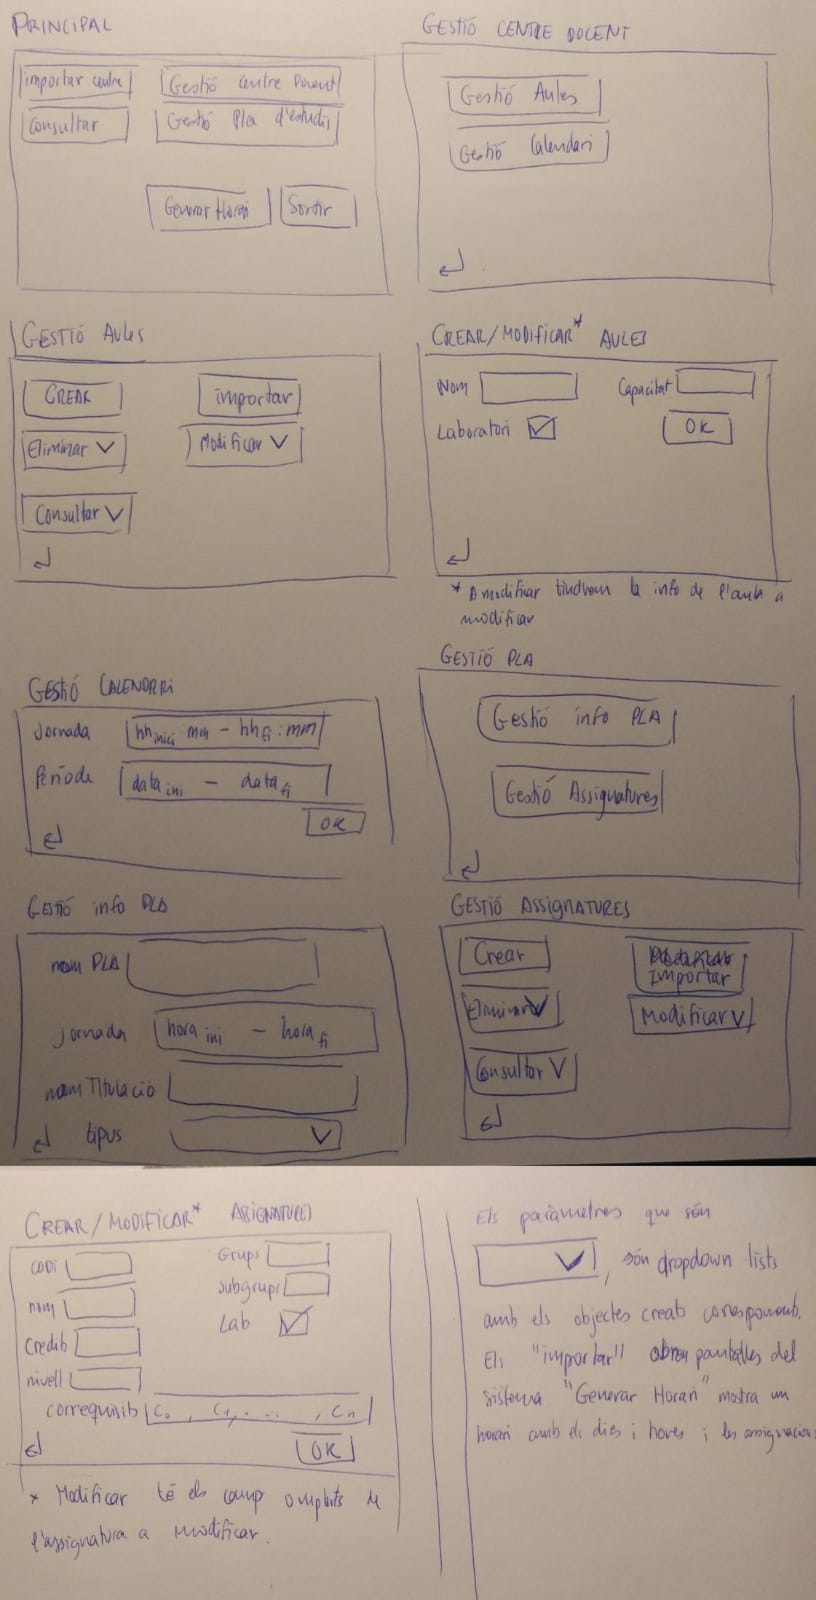 PRINCIPAL
importar centre
Gestió Centre Docent
Consultar
Gestió Pla d'estudis
Generar Horari
Sortir
GESTIÓ CENTRE DOCENT
Gestió Aules
Gestió Calendari
GESTIÓ AUles
CREAR
importar
Eliminar
Modificar
Consultar
CREAR/MODIFICAR* AULES
Nom
Capacitat
Laboratori
OK
* A modificar tindrem la info de l'aula a
modificar
GESTIÓ CALENDARI
Jornada
hh inici : mm - hh fi : mm
Període
data ini - data fi
OK
GESTIÓ PLA
Gestió info PLA
Gestió Assignatures
GESTIÓ info PLA
nom PLA
jornada
hora ini - hora fi
nom Titulació
tipus
GESTIÓ ASSIGNATURES
Crear
importar
Eliminar
Modificar
Consultar
CREAR/MODIFICAR* ASIGNATURES
codi
Grups
nom
subgrups
Crèdits
Lab
nivell
correquisits
C0, C1, ..., Cn
OK
* Modificar té els camps omplerts de
l'assignatura a modificar.
Els paràmetres que són
, són dropdown lists
amb els objectes creats corresponents.
Els "importar" obren pantalles del
sistema "Generar Horari" mostra un
horari amb els dies i hores i les assignacions